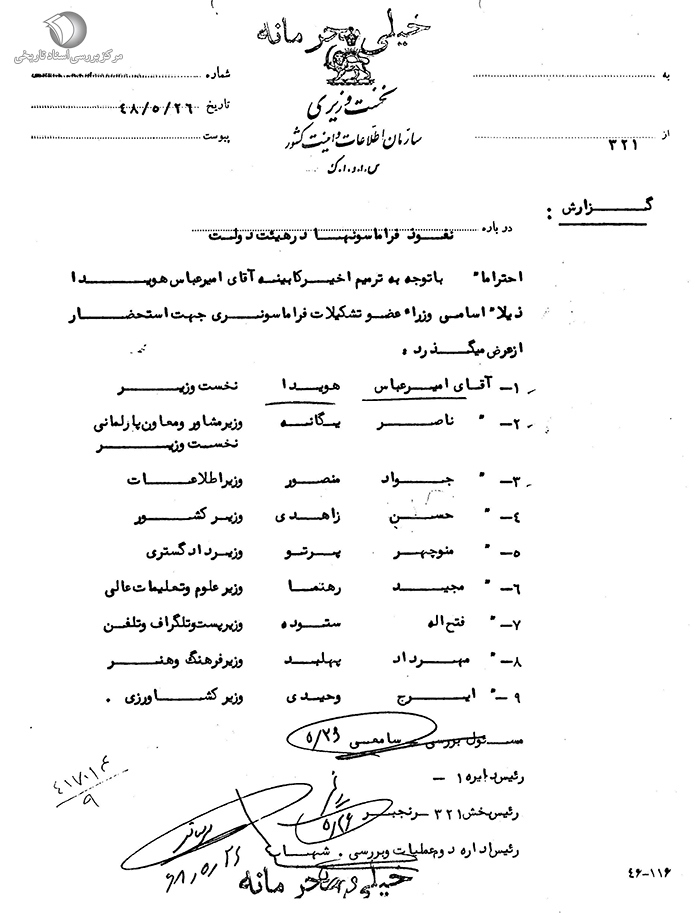 خیلی محرمانه
مرکز بررسی اسناد تاریخی
به
شماره
نخست وزیری
تاریخ ۴۸/۵/۲۶
سازمان اطلاعات و امنیت کشور
پیوست
از ۳۲۱
س.ا.و.ا.ک
گزارش :
درباره نفوذ فراماسونها در هیئت دولت
احتراما" باتوجه به ترمیم اخیر کابینه آقای امیرعباس هویدا
ذیلا" اسامی وزراء عضو تشکیلات فراماسونری جهت استحضار
از عرض میگذرد .
۱– آقای امیرعباس هویدا نخست وزیر
۲– " ناصر یگانه وزیر مشاور و معاون پارلمانی
نخست وزیر
۳– " جواد منصور وزیر اطلاعات
۴– " حسن زاهدی وزیر کشور
۵– " منوچهر پرتو وزیر دادگستری
۶– " مجید رهنما وزیر علوم و تعلیمات عالی
۷– " فتح اله ستوده وزیر پست و تلگراف و تلفن
۸– " مهرداد پهلبد وزیر فرهنگ و هنر
۹– " ایرج وحیدی وزیر کشاورزی .
مسئول بررسی – سامعی ۵/۲۶
رئیس دایره ۱ –
رئیس بخش ۳۲۱ – رنجبر ۵/۲۶
رئیس اداره دوم عملیات و بررسی . شهاب
۴۸/۵/۲۶
خیلی محرمانه
۴۱۷۰۱۴
۹
۴۶-۱۱۶